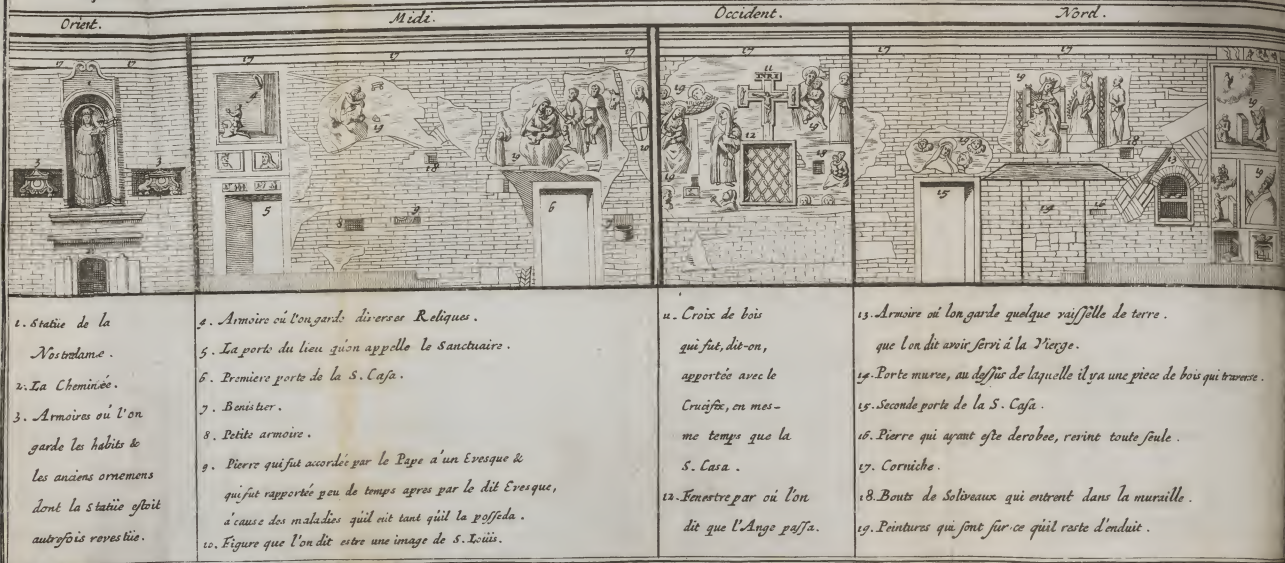 Orient.
Midi.
Occident.
Nord.
INRI
1. Statüe de la
Nostredame.
2. La Cheminée.
3. Armoires où l'on
garde les habits &
les anciens ornemens
dont la Statüe estoit
autrefois revestüe.
4. Armoire où l'on garde diverses Reliques.
5. La porte du lieu qu'on appelle le Sanctuaire.
6. Premiere porte de la S. Casa.
7. Benistier.
8. Petite armoire.
9. Pierre qui fut accordée par le Pape a'un Evesque &
qui fut rapportée peu de temps apres par le dit Evesque,
a'cause des maladies qu'il eut tant qu'il la posseda.
10. Figure que l'on dit estre une image de S. Loüis.
11. Croix de bois
qui fut, dit-on,
apportée avec le
Crucifix, en mes-
me temps que la
S. Casa.
12. Fenestre par où l'on
dit que l'Ange passa.
13. Armoire où lon garde quelque vaisselle de terre.
que l'on dit avoir servi á la Vierge.
14. Porte muree, au dessus de laquelle il y a une piece de bois qui traverse.
15. Seconde porte de la S. Casa.
16. Pierre qui ayant este derobee, revint toute seule.
17. Corniche.
18. Bouts de Soliveaux qui entrent dans la muraille.
19. Peintures qui sont sur ce qüil reste d'enduit.